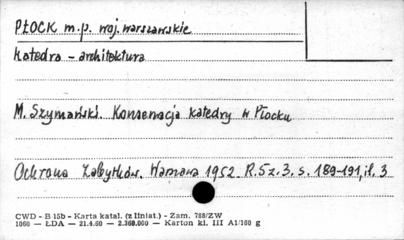 PŁOCK m.p. woj. warszawskie
katedra - architektura
M. Szymański. Konserwacja katedry w Płocku
Ochrona Zabytków. Warszawa 1952. R.5 z.3. s. 189-191, il. 3
CWD - B 15b - Karta katal. (z liniat.) - Zam. 788/ZW
1060 — ŁDA — 21.4.60 — 2.360.000 — Karton kl. III A1/180 g